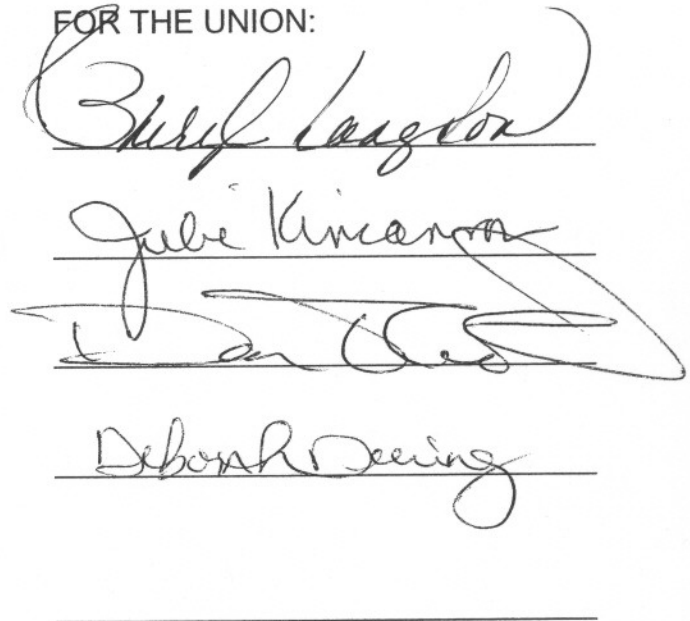 FOR THE UNION:
Langdon
Julie Kincannon
Dan
Deborah Deering